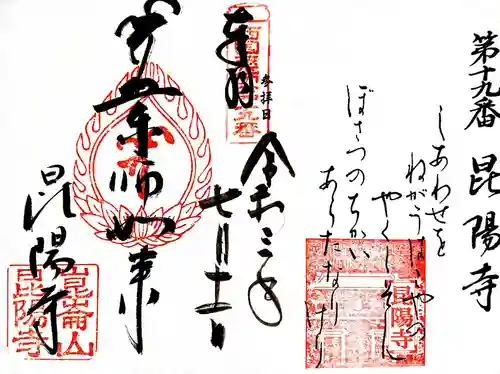 第十九番 昆陽寺
しあわせを
ねがうはこやの
やくしそん
ぼさつのちかい
あらたなりけり
昆陽寺
参拝日
令和三年
七月十一日
奉拝
薬師如来
昆陽寺
崑崙山
昆陽寺